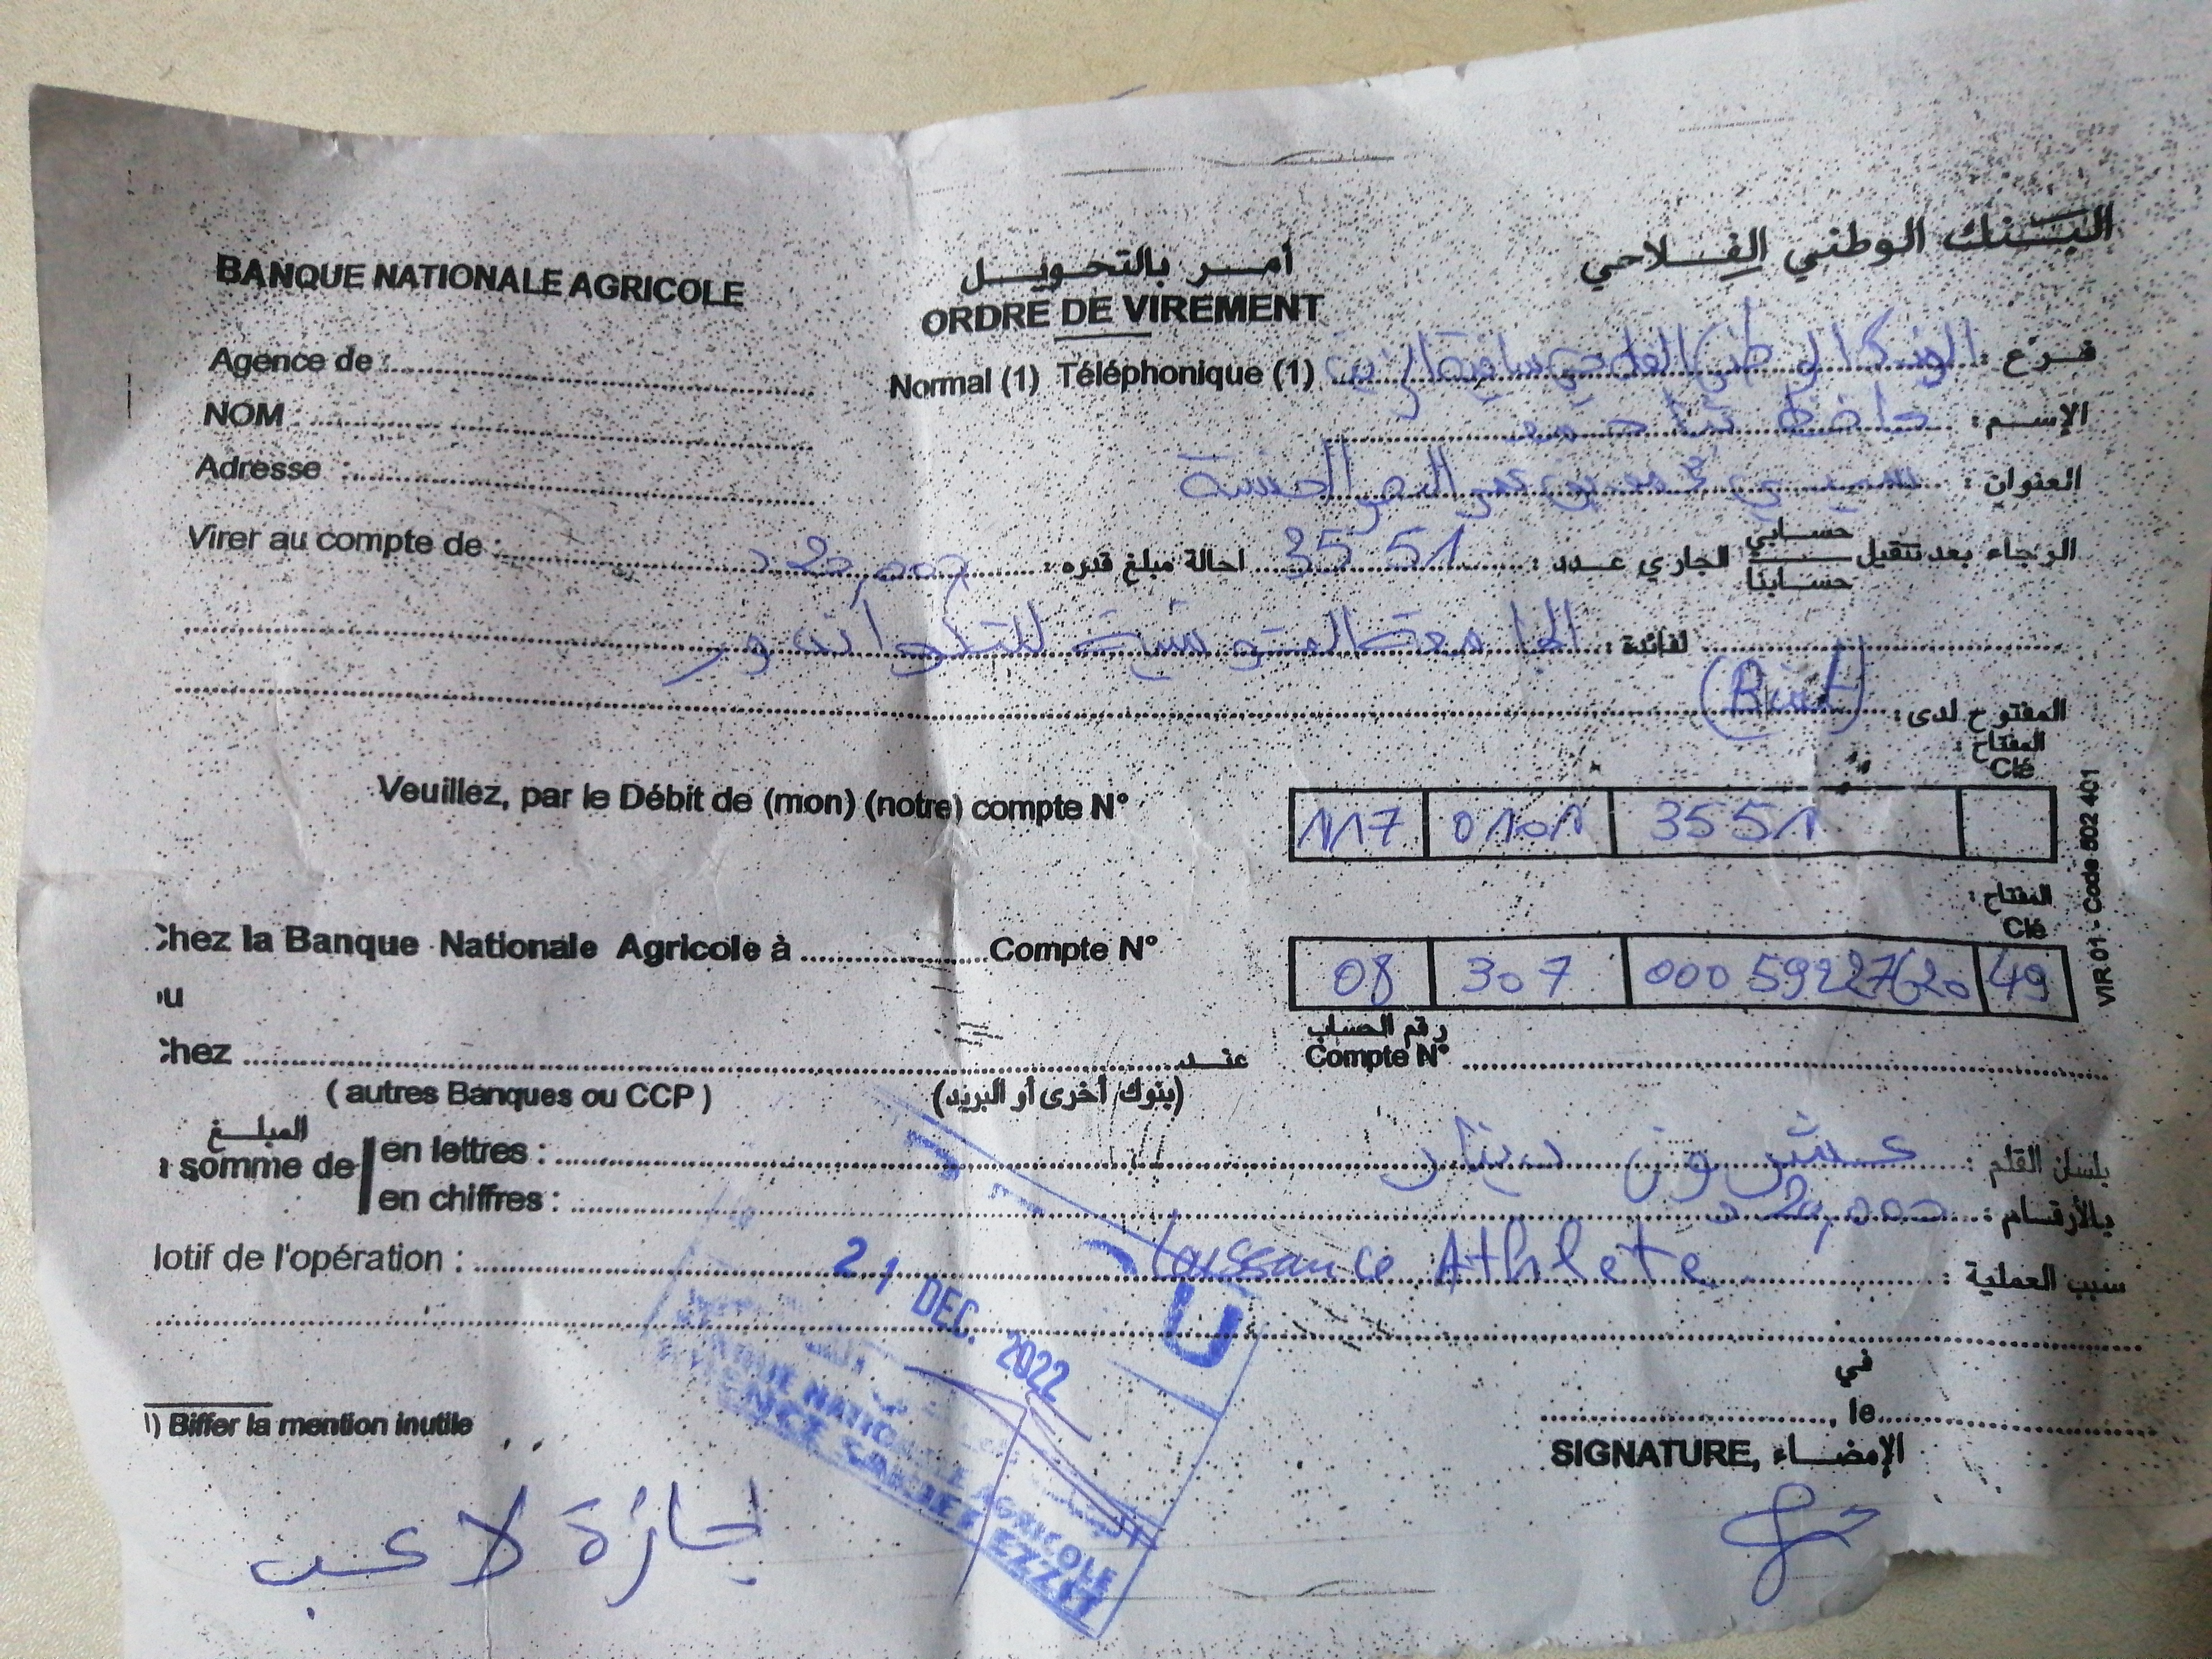 BANQUE NATIONALE AGRICOLE
أمر بالتحويل
البنك الوطني الفلاحي
ORDRE DE VIREMENT
Agence de :
Normal (1) Téléphonique (1)
فرع :
NOM :
الإسم :
Adresse :
العنوان :
Virer au compte de :
الرجاء بعد تنقيل حسابي حسابنا الجاري عدد : 3551 احالة مبلغ قدره : 20,000 د
لفائدة : الجامعة التونسية للتايكواندو
المفتوح لدى :
المفتاح :
Clé
Veuillez, par le Débit de (mon) (notre) compte N° 117 0101 3551
المفتاح :
Clé
Chez la Banque Nationale Agricole à Compte N° 08 307 00059227620 49
ou
رقم الحساب
Chez عند Compte N°
( autres Banques ou CCP ) (بنوك أخرى أو البريد)
المبلغ
en lettres : عشرون دينار بلسان القلم :
somme de
en chiffres : 20,000 د بالأرقام :
Motif de l'opération : Athlete سبب العملية :
21 DEC. 2022
U
BANQUE NATIONALE AGRICOLE
AGENCE SAKIET EZZIT
في
, le
1) Biffer la mention inutile
SIGNATURE, الإمضاء
إجازة لاعب
VIR 01 - Code 502 401